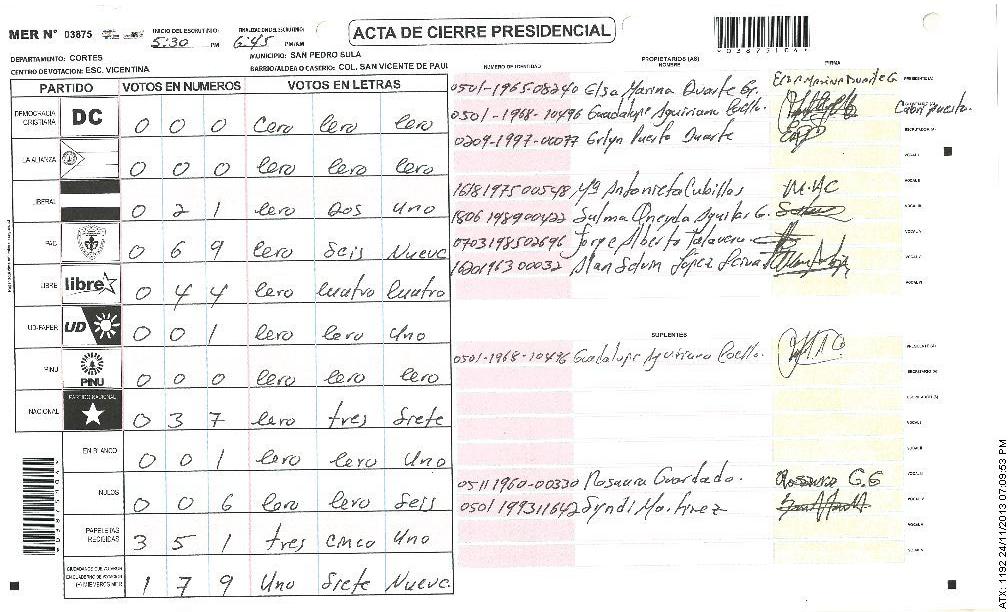 MER N° 03875 INICIO DEL ESCRUTINIO: 5:30 PM FINALIZACION DEL ESCRUTINIO: 6:45 PM/AM ACTA DE CIERRE PRESIDENCIAL
DEPARTAMENTO: CORTES MUNICIPIO: SAN PEDRO SULA
CENTRO DE VOTACION: ESC. VICENTINA BARRIO/ALDEA O CASERIO: COL. SAN VICENTE DE PAUL
NUMERO DE IDENTIDAD PROPIETARIOS (AS) NOMBRE FIRMA
PARTIDO VOTOS EN NUMEROS VOTOS EN LETRAS
DEMOCRACIA CRISTIANA DC 0 0 0 Cero Cero Cero
LA ALIANZA 0 0 0 Cero Cero Cero
LIBERAL 0 2 1 Cero Dos Uno
PAC 0 6 9 Cero Seis Nueve
LIBRE libre 0 4 4 Cero Cuatro Cuatro
UD-FAPER UD 0 0 1 Cero Cero Uno
PINU PINU 0 0 0 Cero Cero Cero
NACIONAL PARTIDO NACIONAL 0 3 7 Cero Tres Siete
EN BLANCO 0 0 1 Cero Cero Uno
NULOS 0 0 6 Cero Cero Seis
PAPELETAS RECIBIDAS 3 5 1 Tres Cinco Uno
CIUDADANOS QUE VOTARON EN CUADERNO DE VOTACION (+) MIEMBROS MER 1 7 9 Uno Siete Nueve
0501-1965-08240 Elsa Marina Duarte G. Elsa Marina Duarte G. PRESIDENTE (A)
0501-1968-10496 Guadalupe Aguiriano Coello.
0209-1997-00077 Erlyn Puerto Duarte ESCRUTADOR (A)
VOCAL I
1618197500548 Mª Antonieta Cubillos VOCAL II
1806198900422 Sulma Oneyda Aguilar G. VOCAL III
0703198502696 Jorge Alberto Talavera
1620196300032 Alan Selvin López
SUPLENTES
0501-1968-10496 Guadalupe Aguiriano Coello. PRESIDENTE (A)
SECRETARIO (A)
ESCRUTADOR (A)
VOCAL I
VOCAL II
05111960-00330 Rosaura Guardado. Rosaura G.G
0501199311642 Syndi Martinez
ATX: 1192 24/11/2013 07:09:53 PM